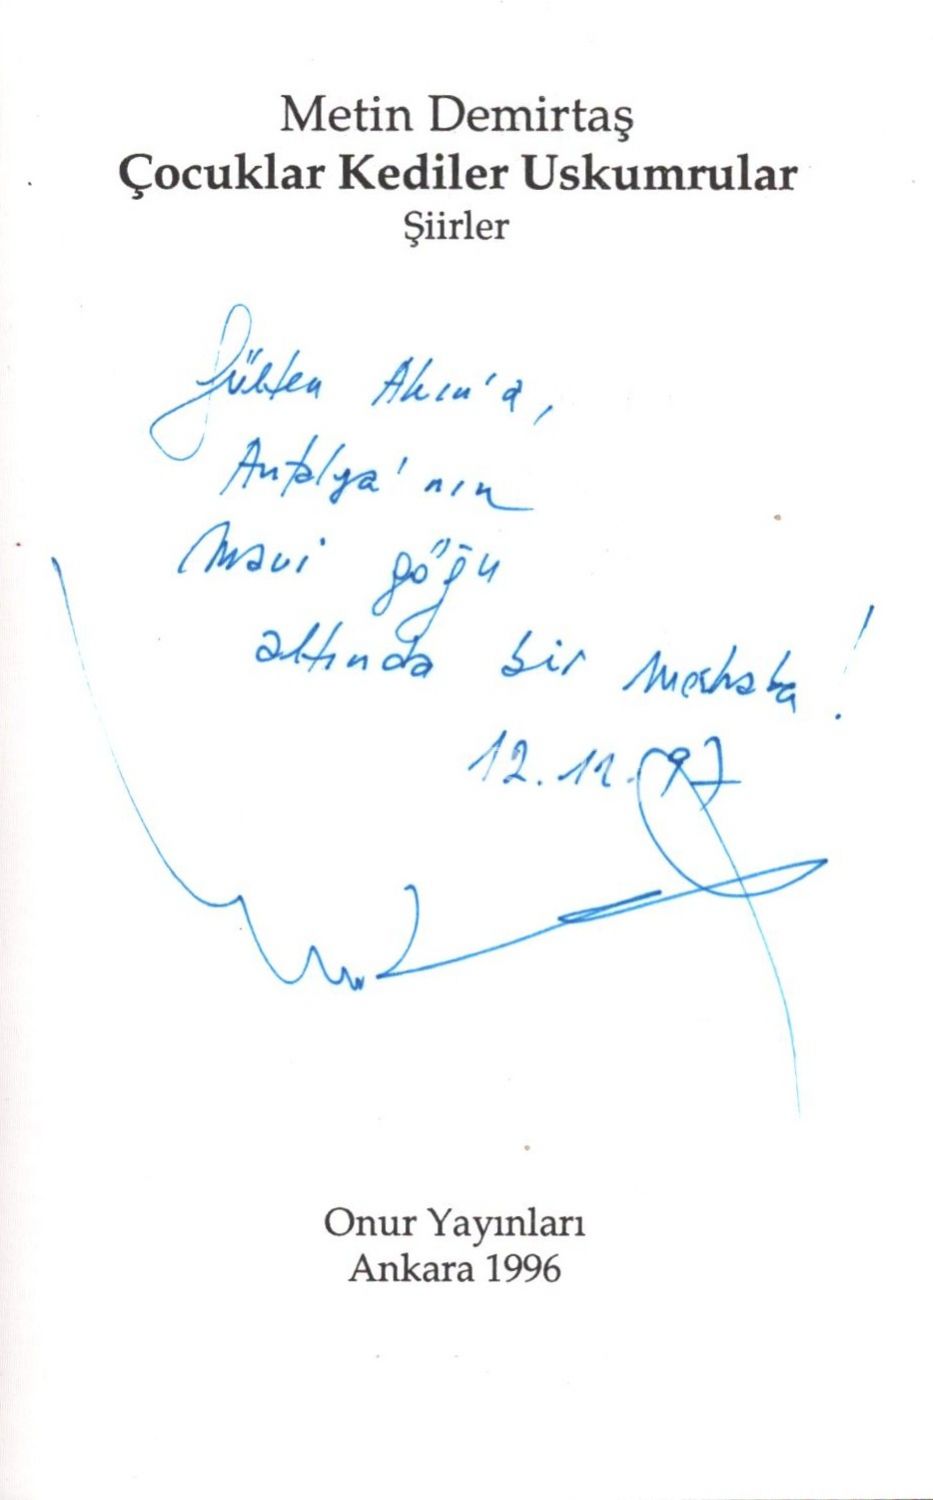 Metin Demirtaş
Çocuklar Kediler Uskumrular
Şiirler
Gülten Akın'a,
Antalya'nın
mavi göğü
altında bir merhaba!
12.11.97
Onur Yayınları
Ankara 1996